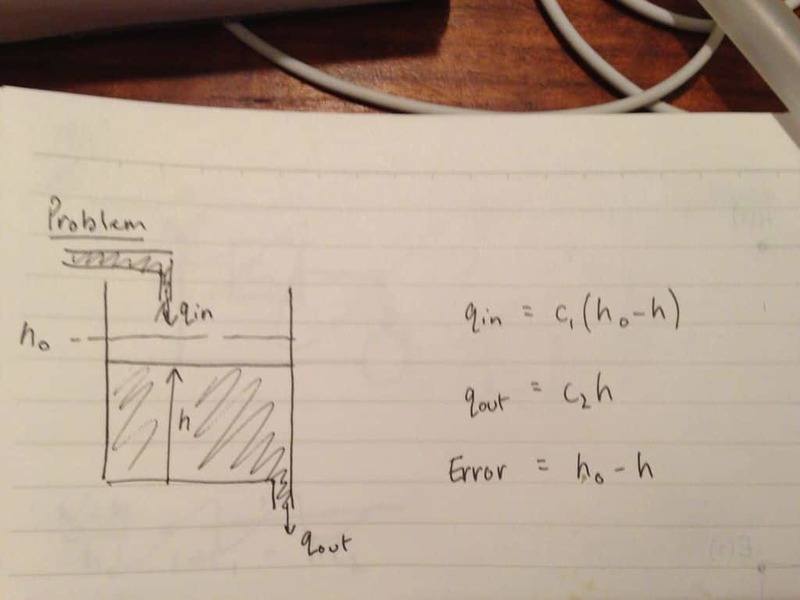 Problem
qin
h₀
h
qout
qin = c₁(h₀-h)
qout = c₂h
Error = h₀-h